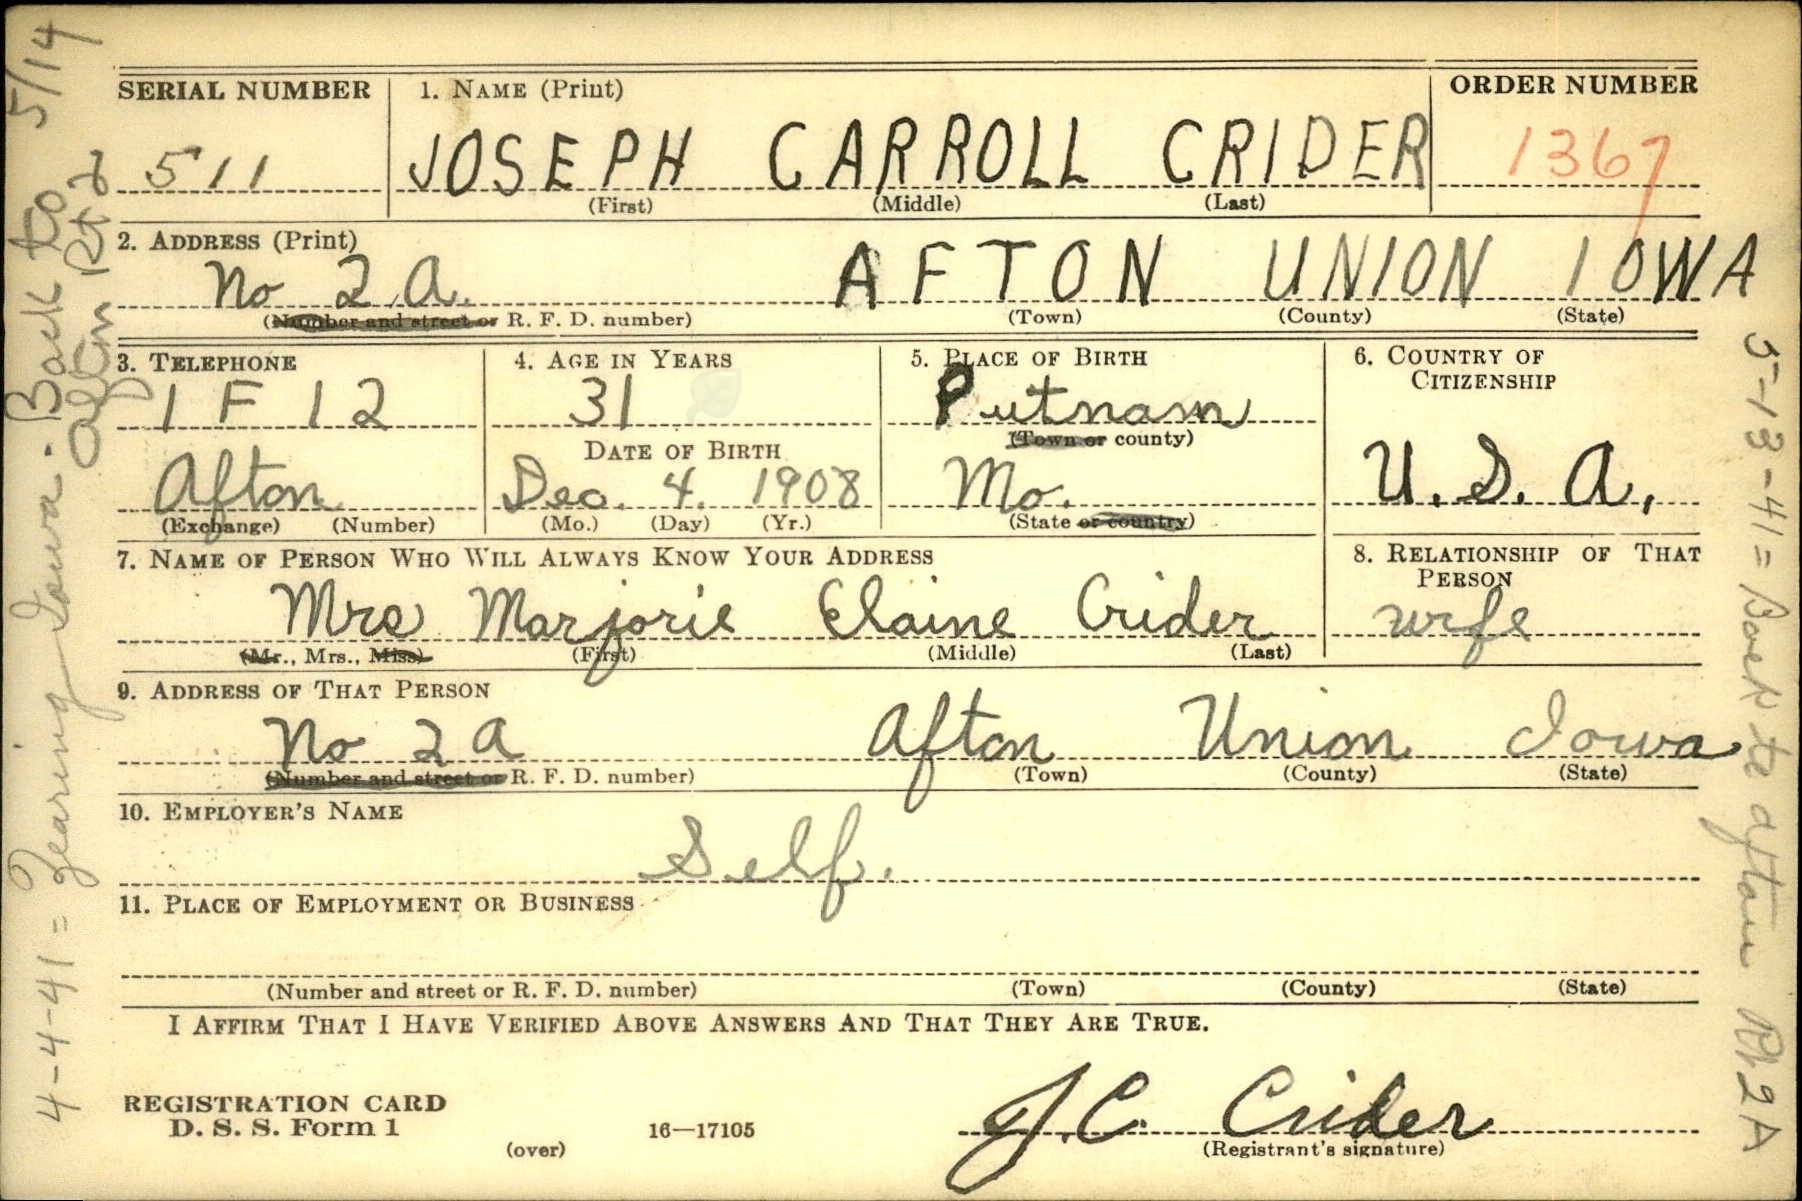 SERIAL NUMBER
511
1. NAME (Print)
JOSEPH CARROLL CRIDER
(First) (Middle) (Last)
ORDER NUMBER
1367
2. ADDRESS (Print)
No 2 A. AFTON UNION IOWA
(Number and street or R. F. D. number) (Town) (County) (State)
3. TELEPHONE
1 F 12
Afton
(Exchange) (Number)
4. AGE IN YEARS
31
DATE OF BIRTH
Dec. 4. 1908
(Mo.) (Day) (Yr.)
5. PLACE OF BIRTH
Putnam
(Town or county)
Mo.
(State or country)
6. COUNTRY OF
CITIZENSHIP
U. S. A.
7. NAME OF PERSON WHO WILL ALWAYS KNOW YOUR ADDRESS
Mrs Marjorie Elaine Crider
(Mr., Mrs., Miss) (First) (Middle) (Last)
8. RELATIONSHIP OF THAT
PERSON
wife
9. ADDRESS OF THAT PERSON
No 2 A Afton Union Iowa
(Number and street or R. F. D. number) (Town) (County) (State)
10. EMPLOYER'S NAME
Self.
11. PLACE OF EMPLOYMENT OR BUSINESS
(Number and street or R. F. D. number) (Town) (County) (State)
I AFFIRM THAT I HAVE VERIFIED ABOVE ANSWERS AND THAT THEY ARE TRUE.
REGISTRATION CARD
D. S. S. Form 1
(over)
16—17105
J. C. Crider
(Registrant's signature)
4-4-41 = Zearing Iowa - Back to 5/14
Afton Rt 2
5-13-41 = Back to Afton Rt. 2 A